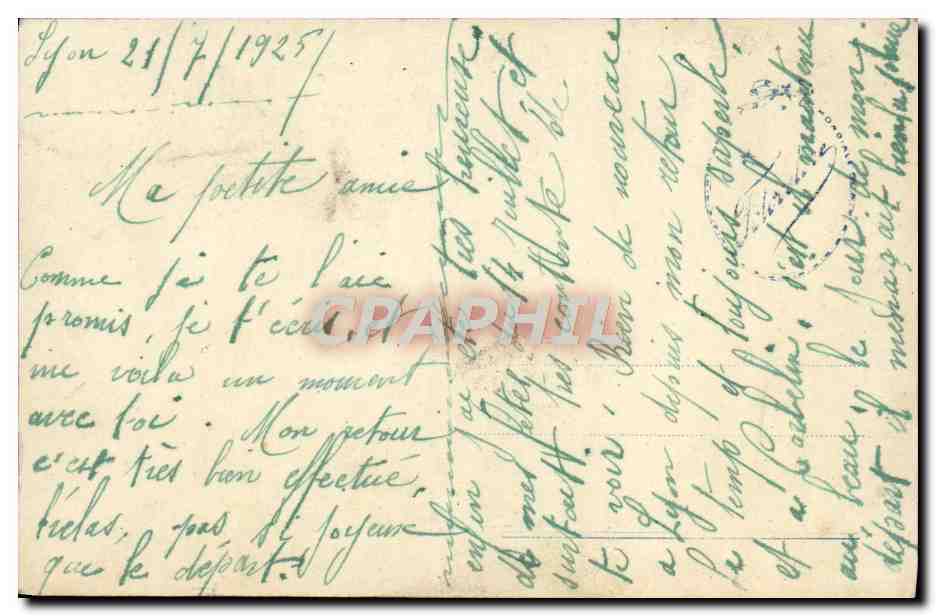 Lyon 21/7/1925
Ma petite amie
Comme je te l'aie
promis, je t'écris, et
me voila un moment
avec toi. Mon retour
c'est très bien effectué,
hélas, pas si joyeux
que le départ.
enfin j'ai été très heureuse
de mes fêtes du 14 Juillet et
surtout très contente de
te voir, Rien de nouveau
a Lyon depuis mon retour
le temp et toujours superbe
et a s'est il maintenu
au beau, le jour de mon
départ il
CPARPHIL